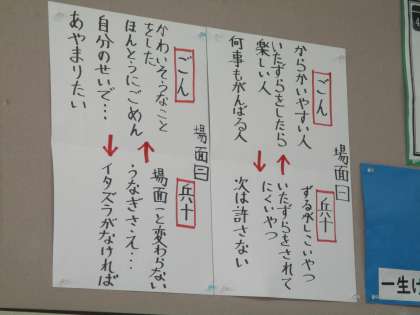 場面一
ごん
からかいやすい人
いたずらをしたら
楽しい人
何事もがんばる人
兵十
ずる水しこいやつ
いたずらをされて
にくいやつ
次は許さない
場面二
ごん
かわいそうなこと
をした
ほんとうにごめん
自分のせいで…
あやまりたい
兵十
場面一と変わらない
うなぎさえ…
イタズラがなければ
一生け